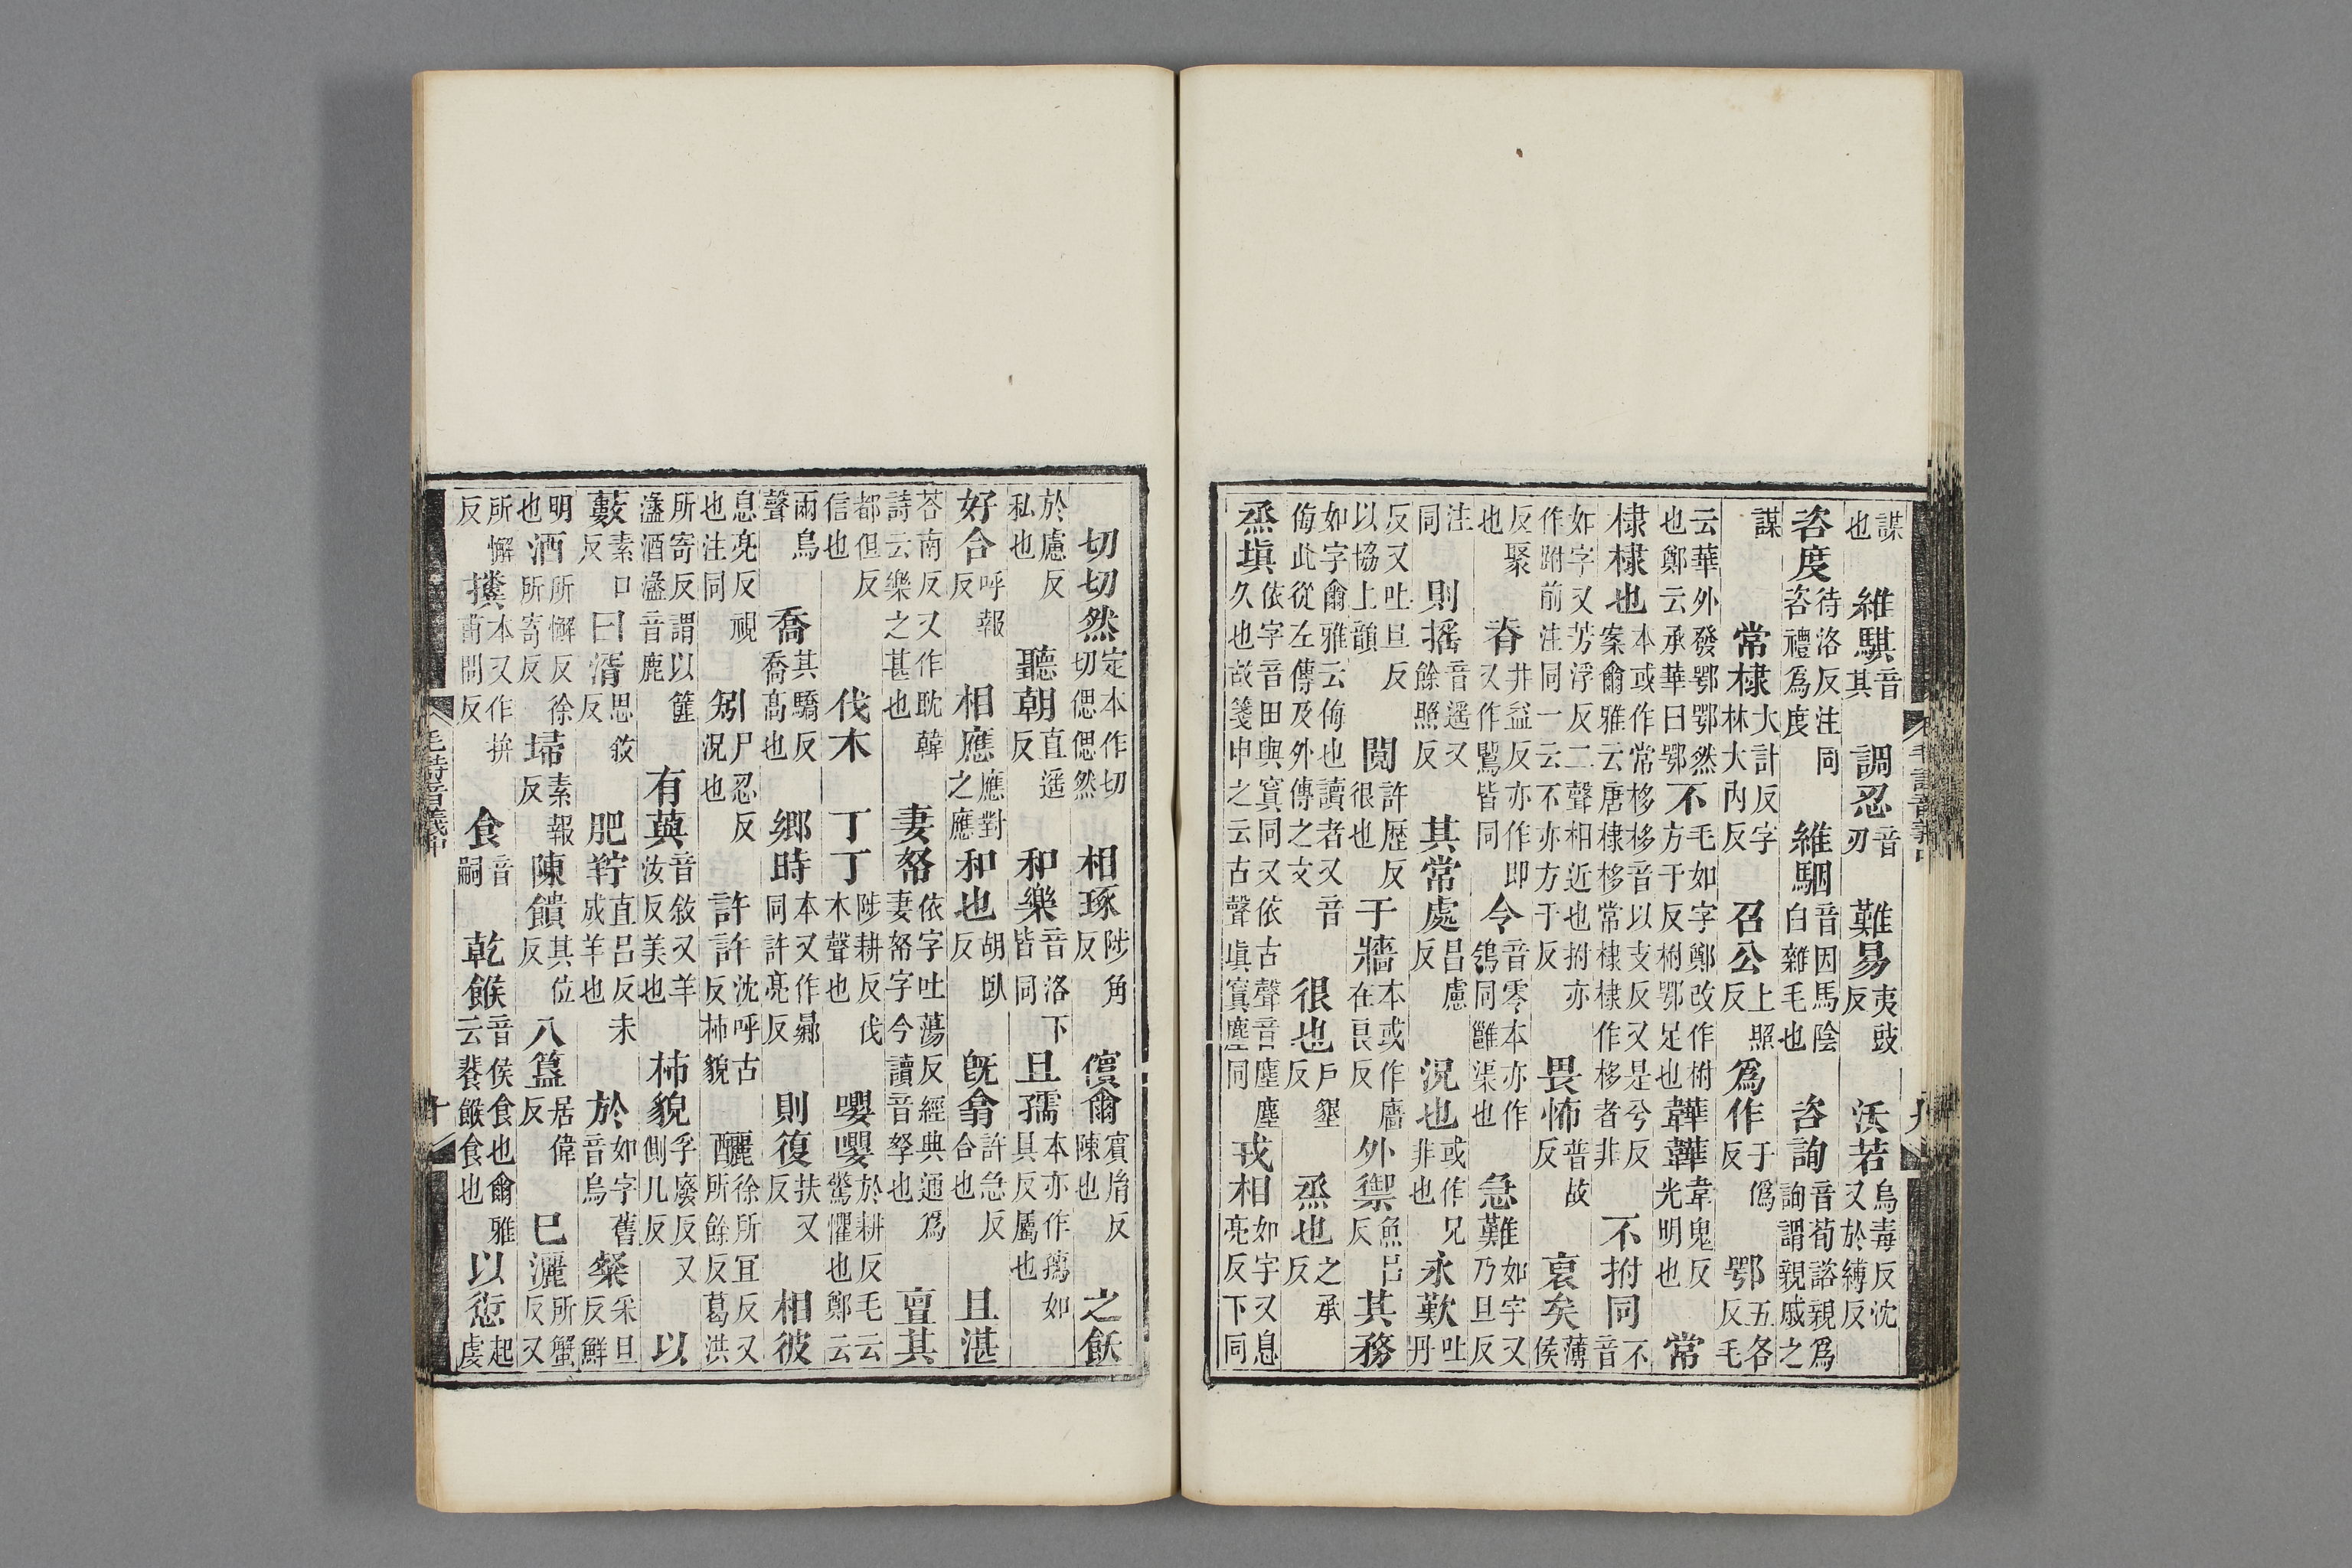 謀也 維騏音其 調忍音刃 難易夷豉反 沃若烏毒反沈又於縛反
咨度待洛反注同咨禮爲度 維駰音因馬陰白雜毛也 咨詢音荀諮親爲詢謂親戚之
謀 常棣大計反字林大内反 召公上照反 爲作于僞反 鄂五各反毛
云華外發鄂鄂然也鄭云承華曰鄂 不毛如字鄭改作柎方于反柎鄂足也 韡韡韋鬼反光明也 常
棣棣也本或作常栘栘音以支反又是兮反案爾雅云唐棣栘常棣棣作栘者非 不拊同不音
如字又芳浮反二聲相近也拊亦作跗前注同一云不亦方于反 畏怖普故反 哀矣薄侯
反聚也 脊井益反亦作即又作鶺皆同 令音零本亦作鴒同雝渠也 急難如字又乃旦反
注同 則摇音遥又餘照反 其常處昌慮反 況也或作兄非也 永歎吐丹
反又吐旦反以協上韻 鬩許歷反很也 于牆本或作廧在良反 外禦魚呂反 其務
如字爾雅云侮也讀者又音侮此從左傳及外傳之文 很也戶墾反 烝也之承反
烝塡依字音田與窴同又依古聲音塵塵久也故箋申之云古聲塡窴塵同 戎相如字又息亮反下同
毛詩音義中 九
切切然定本作切切偲偲然 相琢陟角反 儐爾賓胷反陳也 之飫
於慮反私也 聽朝直遥反 和樂音洛下皆同 且孺本亦作𡦗如具反屬也
好合呼報反 相應應對之應 和也胡臥反 旣翕許急反合也 且湛
荅南反又作耽韓詩云樂之甚也 妻帑依字吐蕩反經典通爲妻帑字今讀音孥也 亶其
都但反信也 伐木 丁丁陟耕反伐木聲也 嚶嚶於耕反毛云驚懼也鄭云
兩鳥聲 喬其驕反喬高也 鄉時本又作曏同許亮反 則復扶又反 相彼
息亮反視也注同 矧尸忍反況也 許許沈呼古反柹貌 釃徐所宜反又所餘反葛洪
所寄反謂以篚盪酒盪音鹿 有藇音敘又羊汝反美也 柹貌孚廢反又側几反 以
藪素口反 曰湑思敘反 肥羜直呂反未成羊也 於如字舊音烏 粲采旦反鮮
明也 洒所懈反徐所寄反 埽素報反 陳饋其位反 八簋居偉反 已灑所蟹反又
所懈反 㩓本又作拚甫問反 食音嗣 乾餱音侯食也爾雅云餥餱食也 以愆起虔
毛詩音義中 十